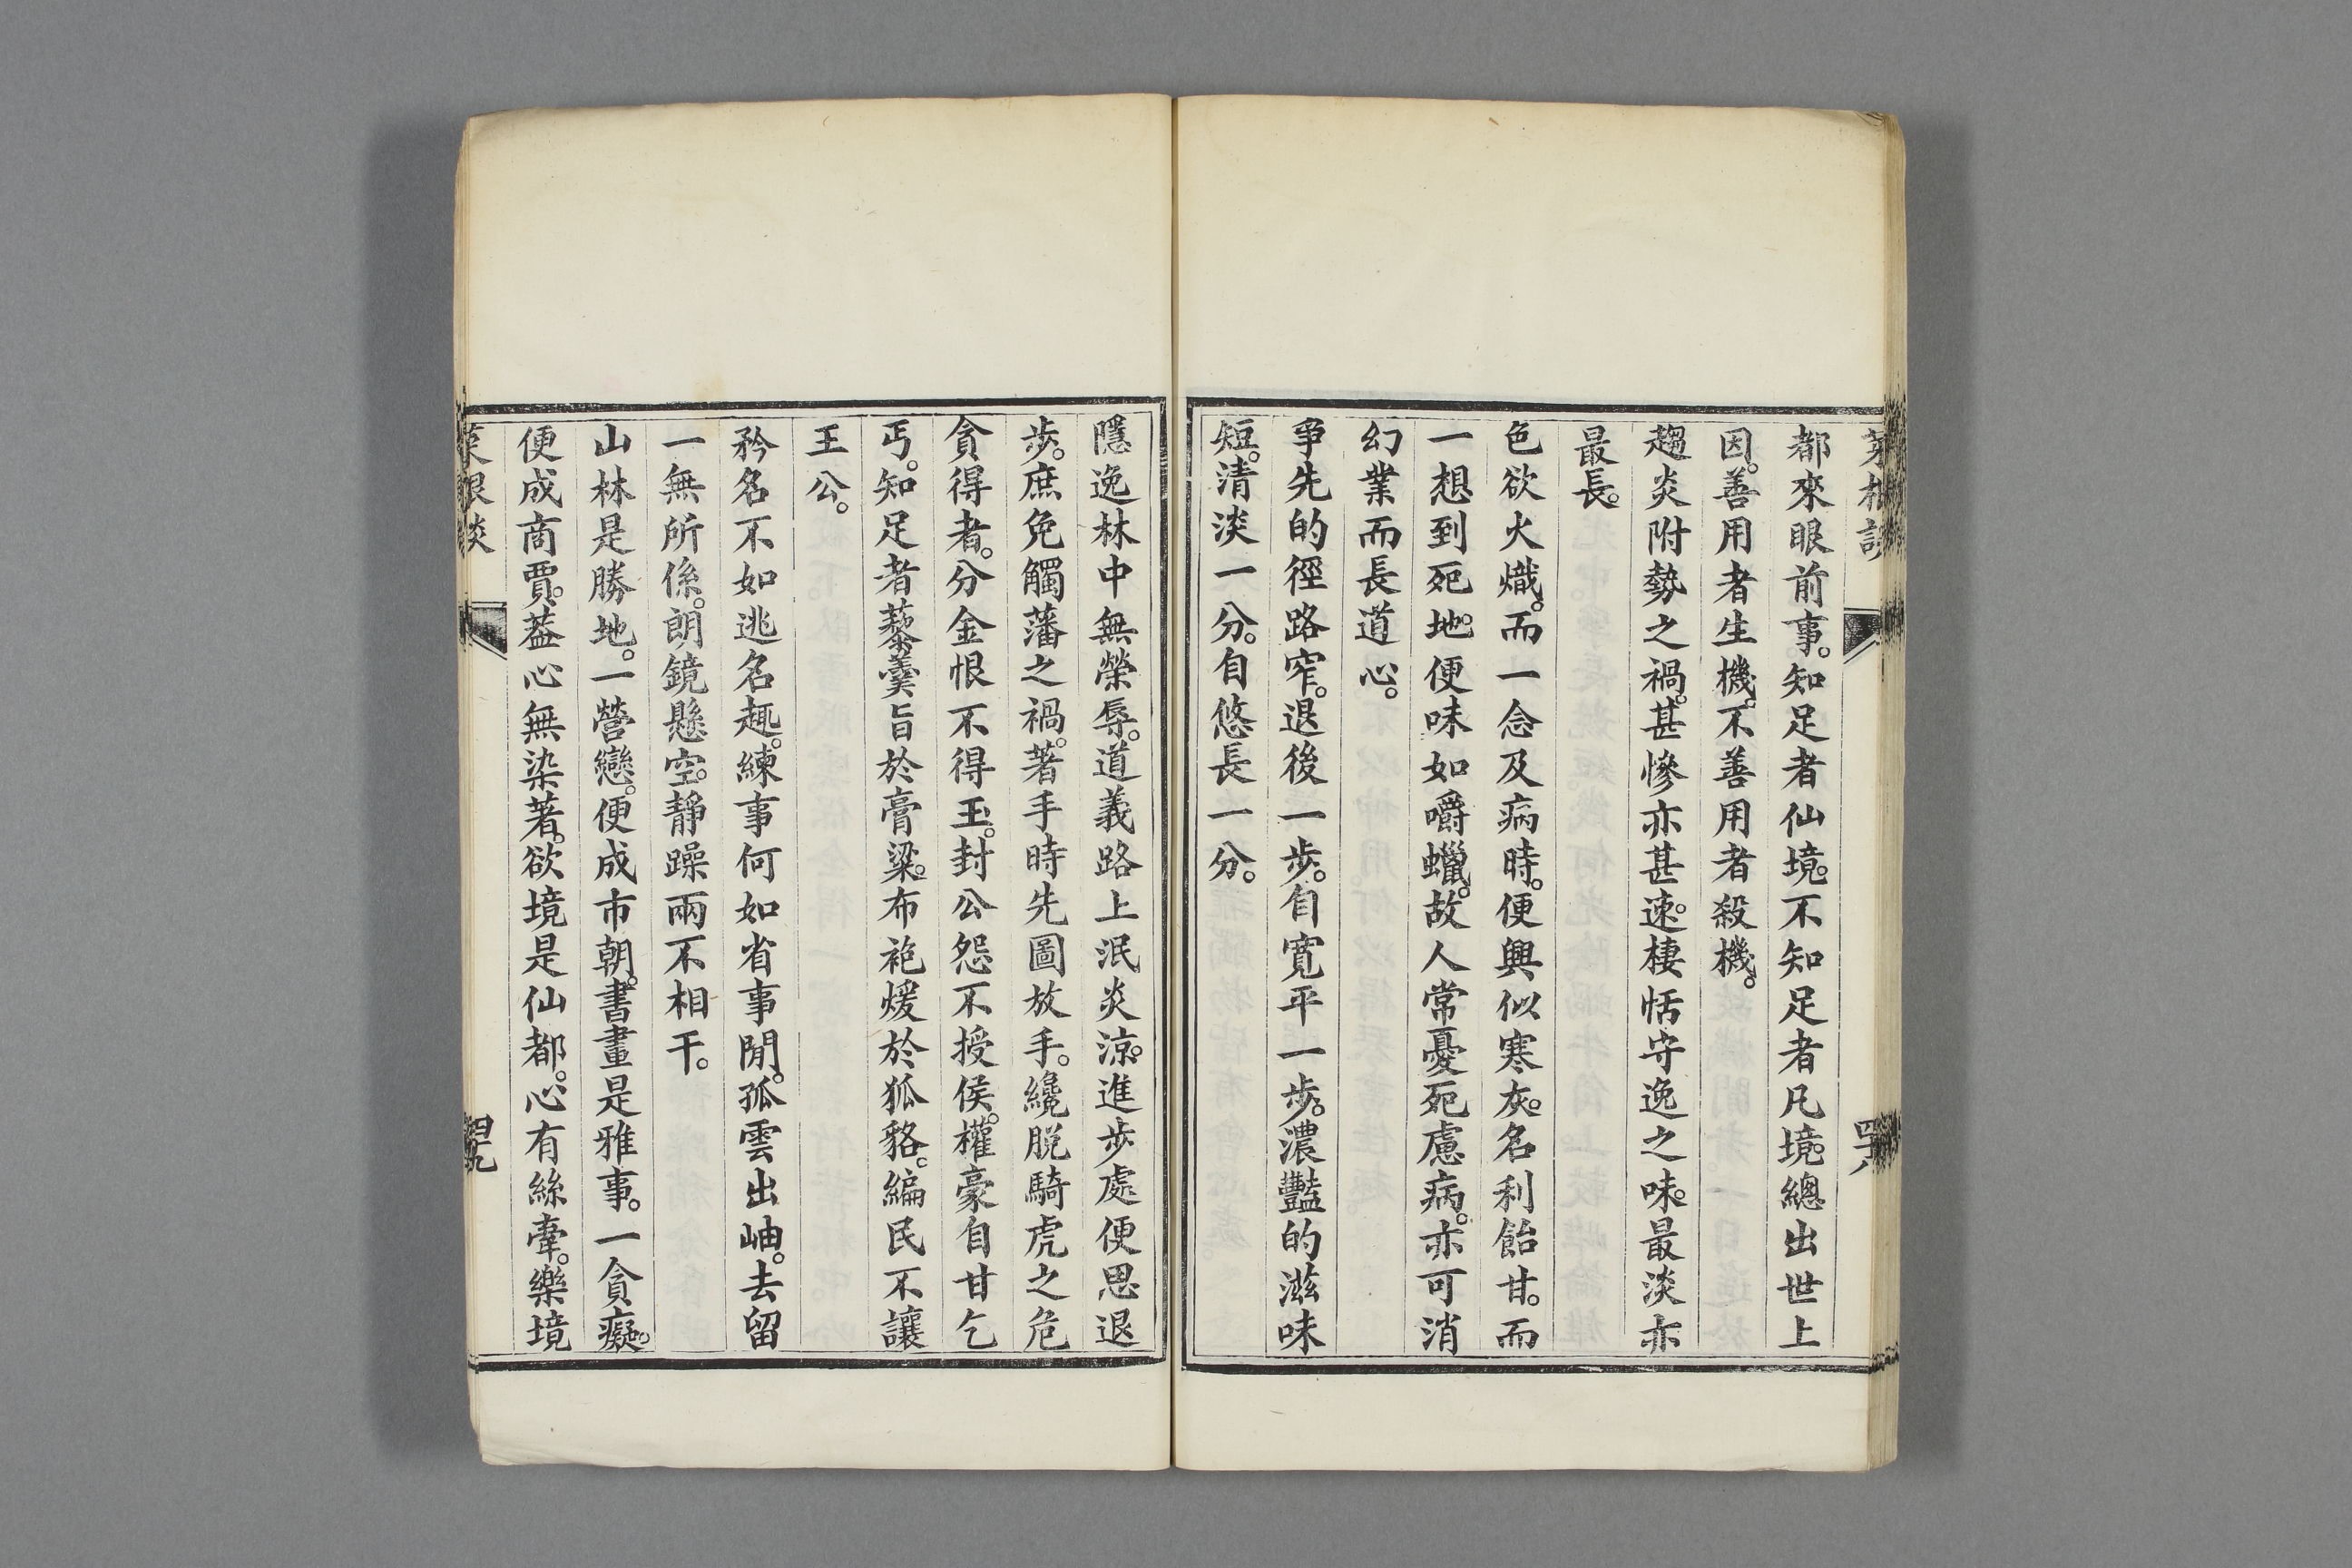 菜根談
四十八
都來眼前事。知足者仙境。不知足者凡境。總出世上
因。善用者生機。不善用者殺機。
趨炎附勢之禍。甚慘亦甚速。棲恬守逸之味。最淡亦
最長。
色欲火熾。而一念及病時。便興似寒灰。名利飴甘。而
一想到死地。便味如嚼蠟。故人常憂死慮病。亦可消
幻業而長道心。
爭先的徑路窄。退後一步。自寬平一步。濃豔的滋味
短。清淡一分。自悠長一分。
隱逸林中無榮辱。道義路上泯炎涼。進步處便思退
步。庶免觸藩之禍。著手時先圖放手。纔脫騎虎之危
貪得者。分金恨不得玉。封公怨不授侯。權豪自甘乞
丐。知足者藜羹旨於膏粱。布袍煖於狐貉。編民不讓
王公。
矜名不如逃名趣。練事何如省事閒。孤雲出岫。去留
一無所係。朗鏡懸空。靜躁兩不相干。
山林是勝地。一營戀。便成市朝。書畫是雅事。一貪癡。
便成商賈。葢心無染著。欲境是仙都。心有絲牽。樂境
菜根談
四十九